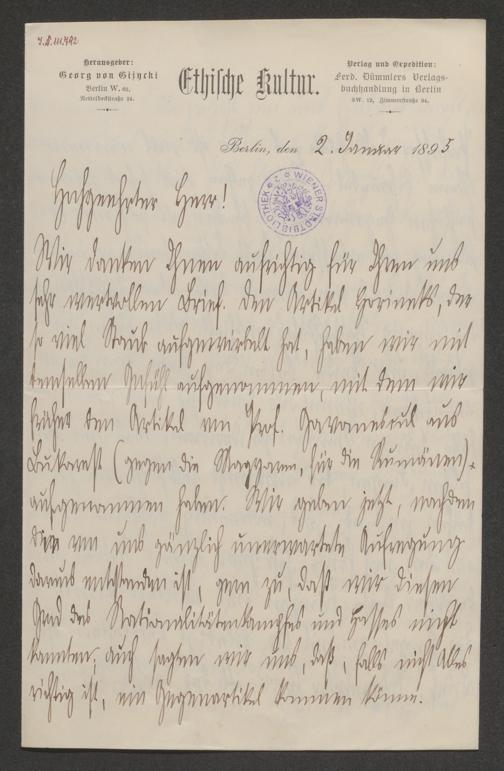 I.N. 111.492
Herausgeber:
Georg von Gizycki
Berlin W. 62,
Nettelbeckstraße 24.
Ethische Kultur.
Verlag und Expedition:
Ferd. Dümmlers Verlags-
buchhandlung in Berlin
SW. 12, Zimmerstraße 94.
Berlin, den 2. Januar 1895
WIENER STADTBIBLIOTHEK
Hochgeehrter Herr!
Wir danken Ihnen aufrichtig für Ihren uns
sehr wertvollen Brief. Den Artikel Horineks, der
so viel Staub aufgewirbelt hat, haben wir mit
demselben Gefühl aufgenommen, mit dem wir
früher den Artikel von Prof. aus
Bukarest (gegen die Magyaren, für die Rumänen)
aufgenommen haben. Wir geben jetzt, nachdem
die von uns gänzlich unerwartete Aufregung
daraus entstanden ist, gern zu, daß wir diesen
Grad des Nationalitätenkampfes und Hasses nicht
kannten; auch sagten wir uns, daß, falls nicht Alles
richtig ist, ein Gegenartikel kommen könne.